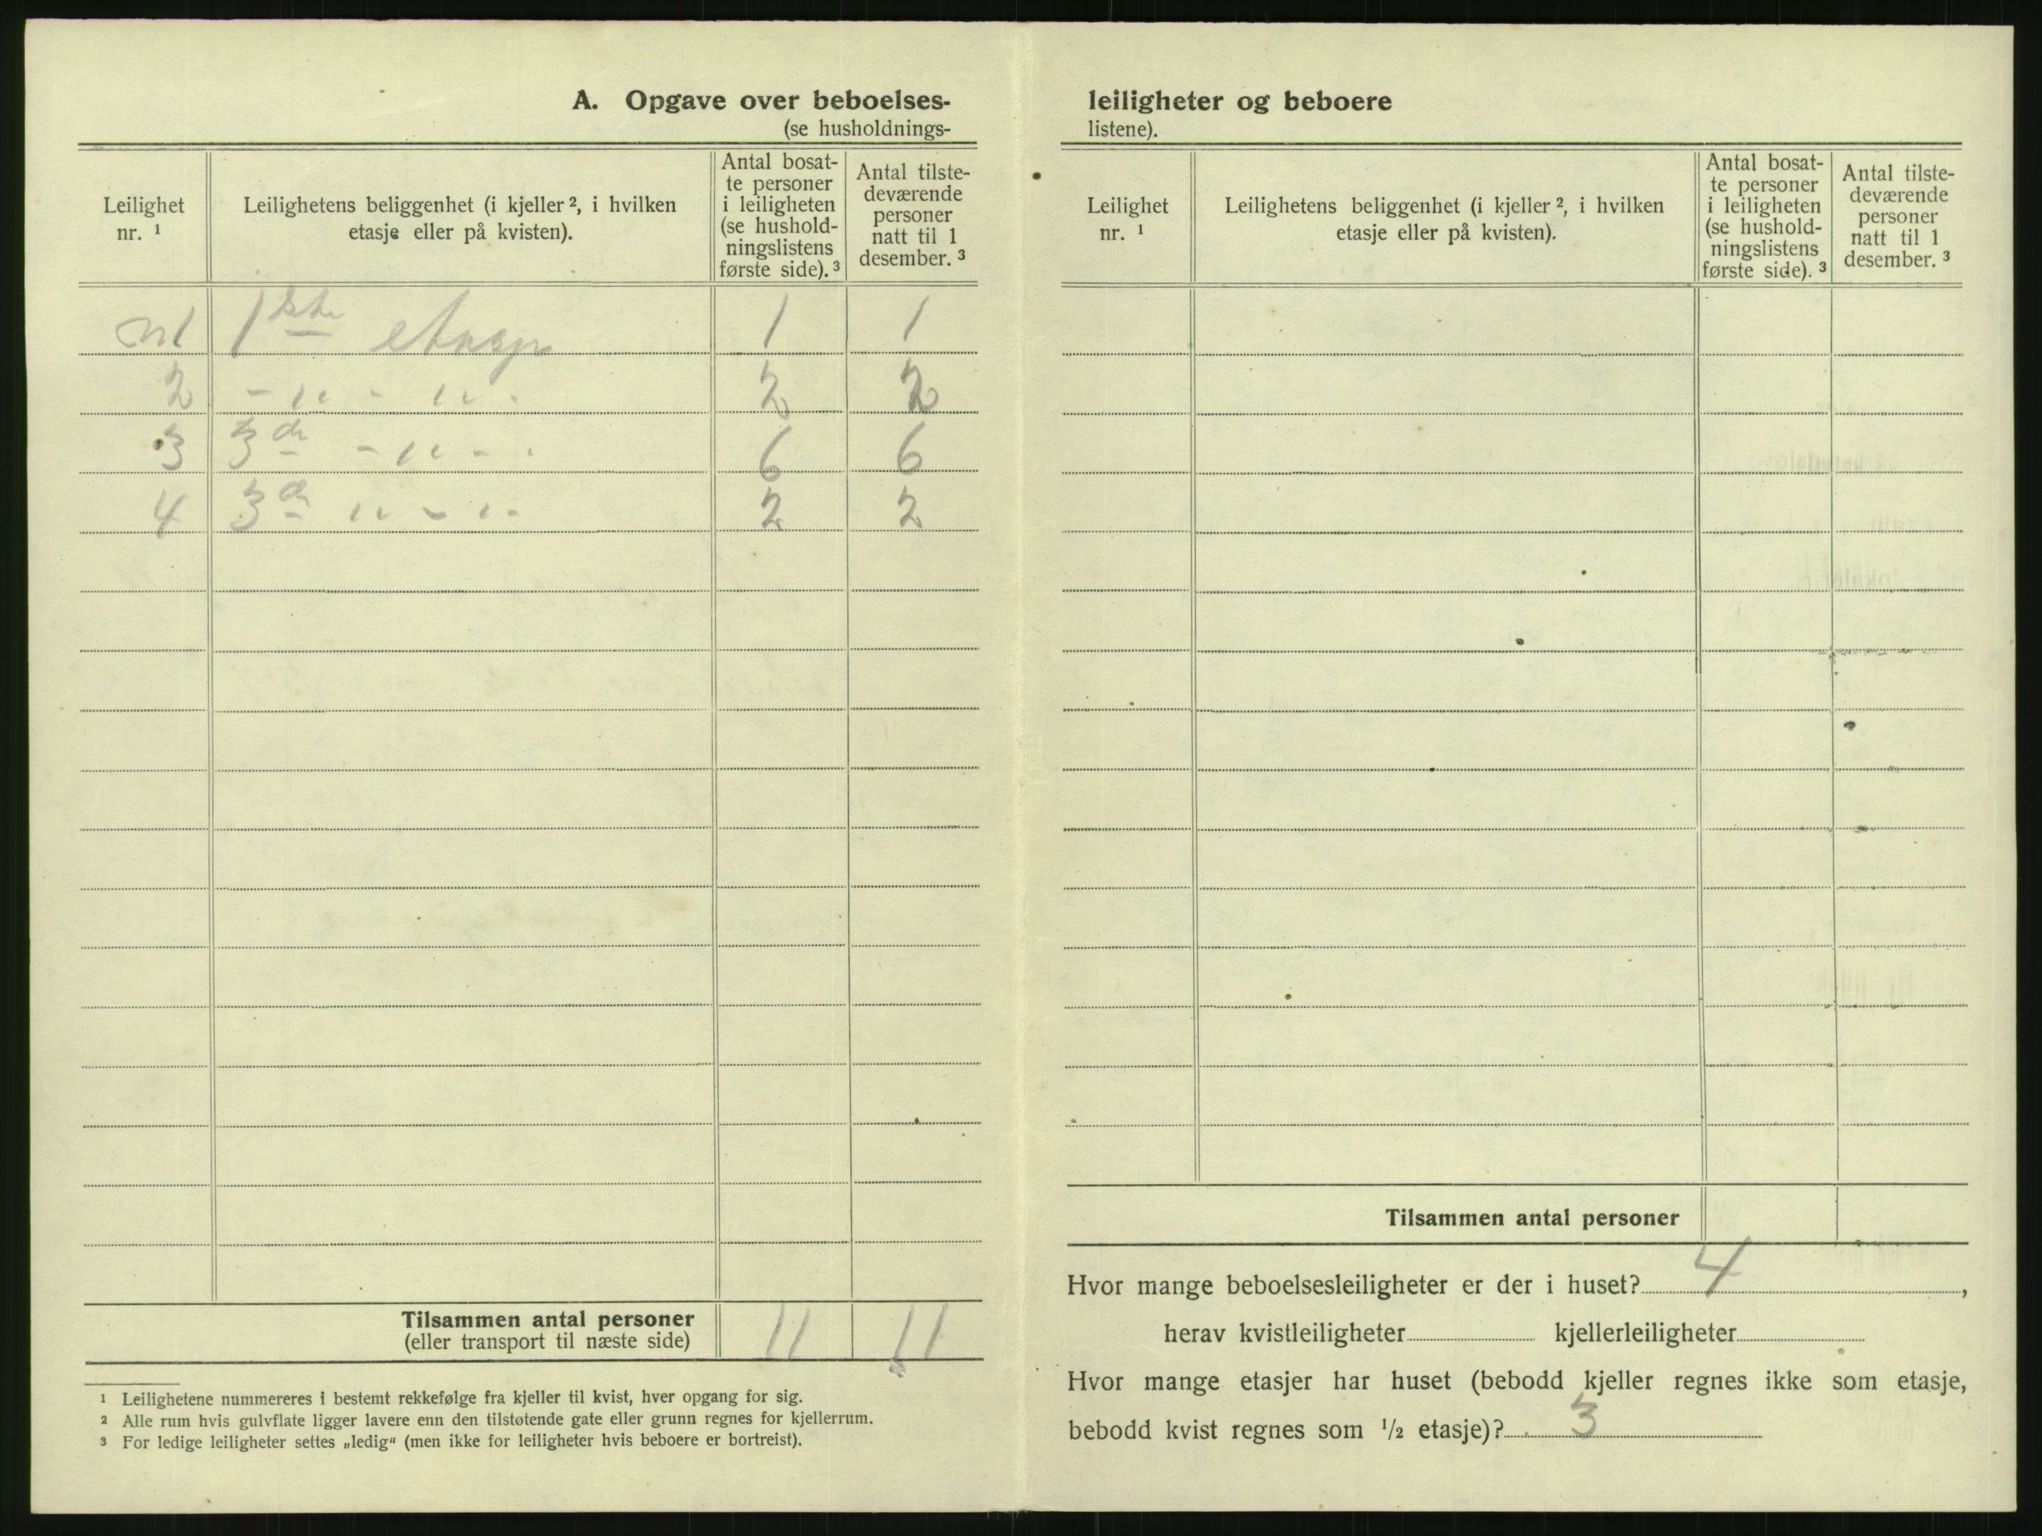 A. Opgave over beboelses-
(se husholdnings-
Leilighet nr. ¹
Leilighetens beliggenhet (i kjeller ², i hvilken etasje eller på kvisten).
Antal bosat-
te personer
i leiligheten
(se hushold-
ningslistens
første side). ³
Antal tilste-
deværende
personer
natt til 1
desember. ³
1 1ste etasje 1 1
2 - 〃 - 〃 - 2 2
3 3de - 〃 - - 6 6
4 3d 〃 - 〃 - 2 2
Tilsammen antal personer 11 11
(eller transport til næste side)
¹ Leilighetene nummereres i bestemt rekkefølge fra kjeller til kvist, hver opgang for sig.
² Alle rum hvis gulvflate ligger lavere enn den tilstøtende gate eller grunn regnes for kjellerrum.
³ For ledige leiligheter settes „ledig“ (men ikke for leiligheter hvis beboere er bortreist).
leiligheter og beboere
listene).
Leilighet nr. ¹
Leilighetens beliggenhet (i kjeller ², i hvilken etasje eller på kvisten).
Antal bosat-
te personer
i leiligheten
(se hushold-
ningslistens
første side). ³
Antal tilste-
deværende
personer
natt til 1
desember. ³
Tilsammen antal personer
Hvor mange beboelsesleiligheter er der i huset? 4,
herav kvistleiligheter kjellerleiligheter
Hvor mange etasjer har huset (bebodd kjeller regnes ikke som etasje,
bebodd kvist regnes som ½ etasje)? 3